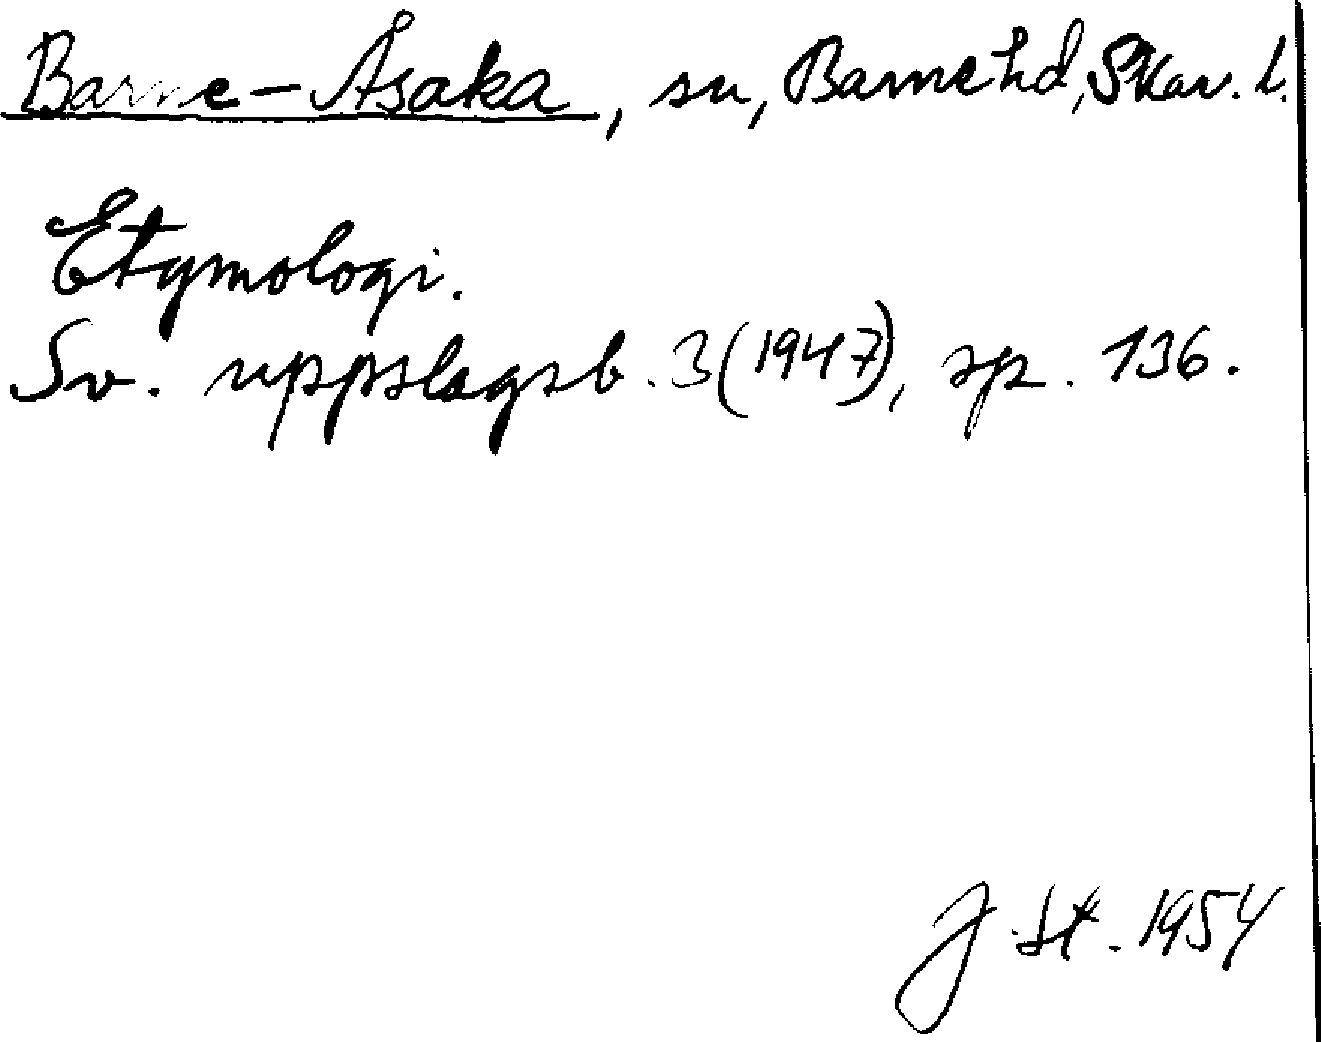 Barne-Åsaka, sn, Barne hd, Skar. l.
Etymologi.
Sv. uppslagsb. 3 (1947), sp. 136.
J. St. 1954